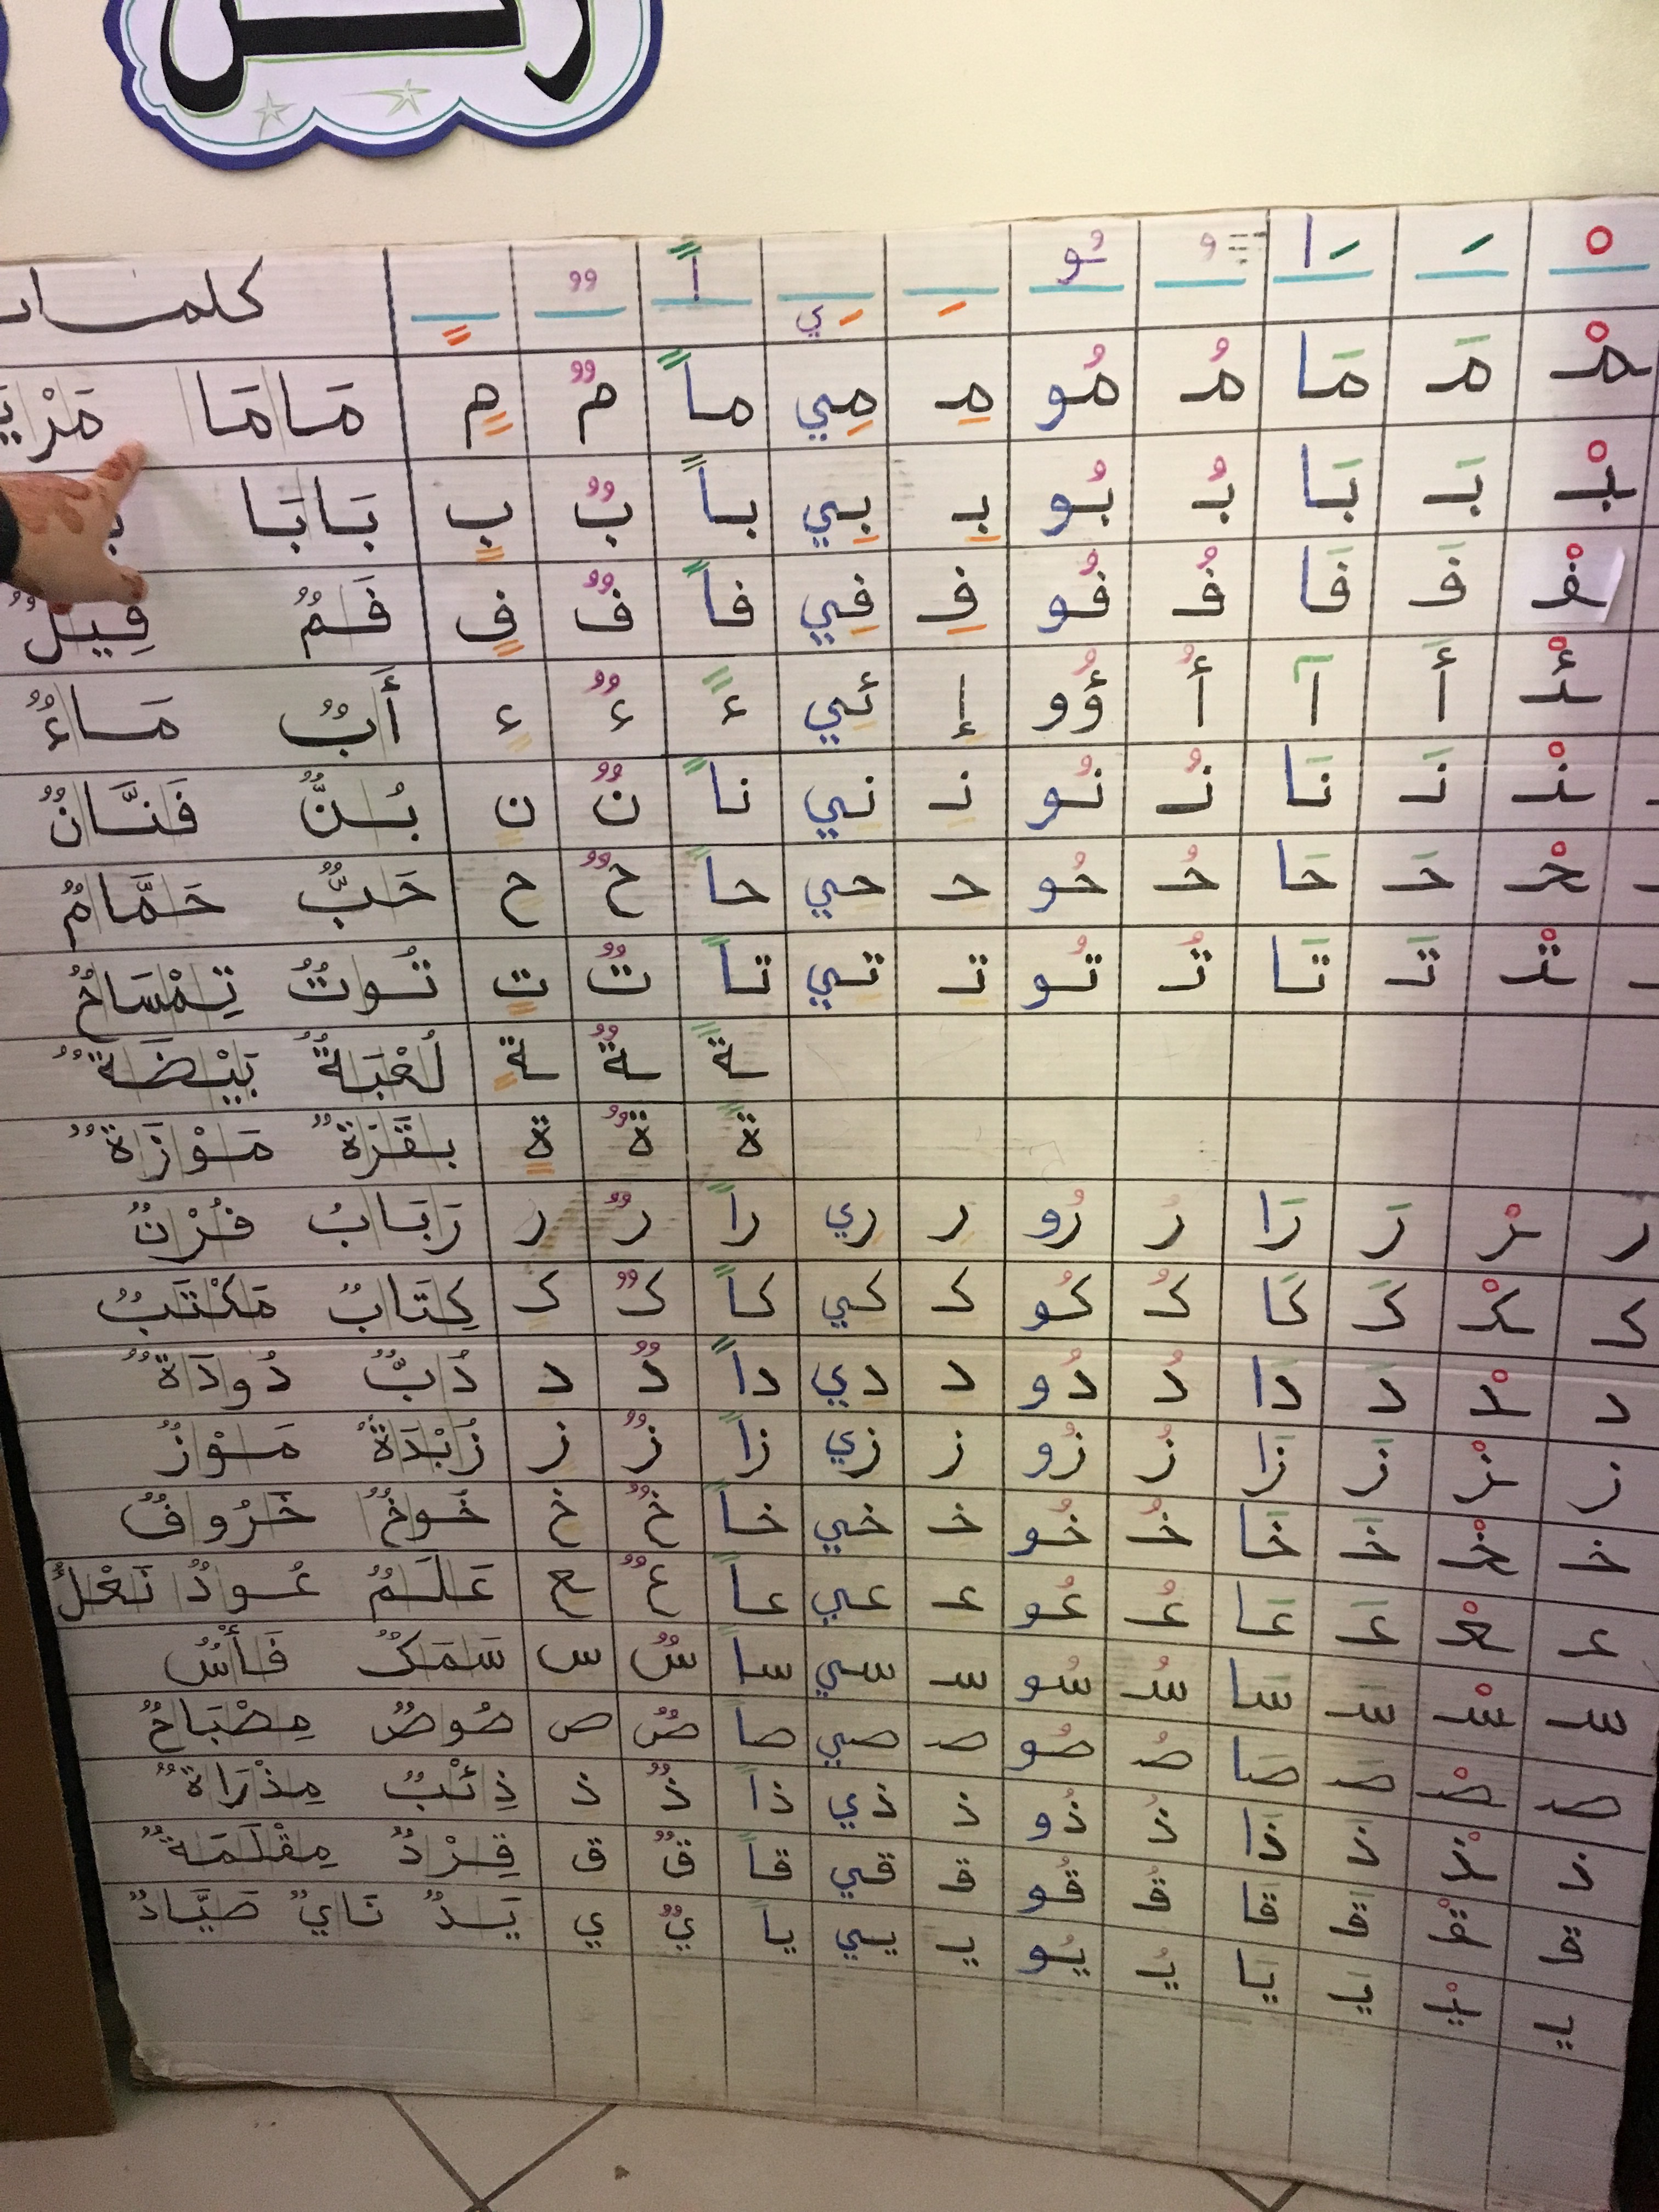 كلمات
مْ مَ مَا مُ مُو مِ مِي ماً مٌ مٍ مَامَا
بْ بَ بَا بُ بُو بِ بِي باً بٌ بٍ بَابَا
فْ فَ فَا فُ فُو فِ فِي فاً فٌ فٍ فَمٌ فِيلٌ
ئْ أَ آ أُ ؤُو إِ ئِي ءً ءٌ ءٍ أَبٌ مَاءٌ
نْ نَ نَا نُ نُو نِ نِي ناً نٌ نٍ بُنٌّ فَنَّانٌ
حْ حَ حَا حُ حُو حِ حِي حاً حٌ حٍ حَبٌّ حَمَّامٌ
تْ تَ تَا تُ تُو تِ تِي تاً تٌ تٍ تُوتٌ تِمْسَاحٌ
ـةً ـةٌ ـةٍ لُعْبَةٌ بَيْضَةٌ
ةً ةٌ ةٍ بقَرَةٌ مَوْزَةٌ
ر رْ رَ رَا رُ رُو رِ رِي راً رٌ رٍ رَبَابُ فُرْنٌ
كـ كْـ كَـ كَا كُـ كُو كِـ كِي كاً كٌـ كٍـ كِتَابٌ مَكْتَبٌ
د دْ دَ دَا دُ دُو دِ دِي داً دٌ دٍ دُبٌّ دُودَةٌ
ز زْ زَ زَا زُ زُو زِ زِي زاً زٌ زٍ زُبْدَةٌ مَوْزٌ
خـ خْـ خَـ خَا خُـ خُو خِـ خِي خاً خٌ خٍ خَوخٌ خَرُوفٌ
عـ عْـ عَـ عَا عُـ عُو عِـ عِي عاً عٌ عٍ عَلَمٌ عُودٌ نَعْلٌ
سـ سْـ سَـ سَا سُـ سُو سِـ سِي ساً سٌ سٍ سَمَكٌ فَأْسٌ
صـ صْـ صَـ صَا صُـ صُو صِـ صِي صاً صٌ صٍ صُوصٌ مِصْبَاحٌ
ذ ذْ ذَ ذَا ذُ ذُو ذِ ذِي ذاً ذٌ ذٍ ذِئْبٌ مِذْرَاةٌ
قـ قْـ قَـ قَا قُـ قُو قِـ قِي قاً قٌ قٍ قِرْدٌ مِقْلَمَةٌ
يـ يْـ يَـ يَا يُـ يُو يِـ يِي ياً يٌ يٍ يَدٌ نَايٌ صَيَّادٌ